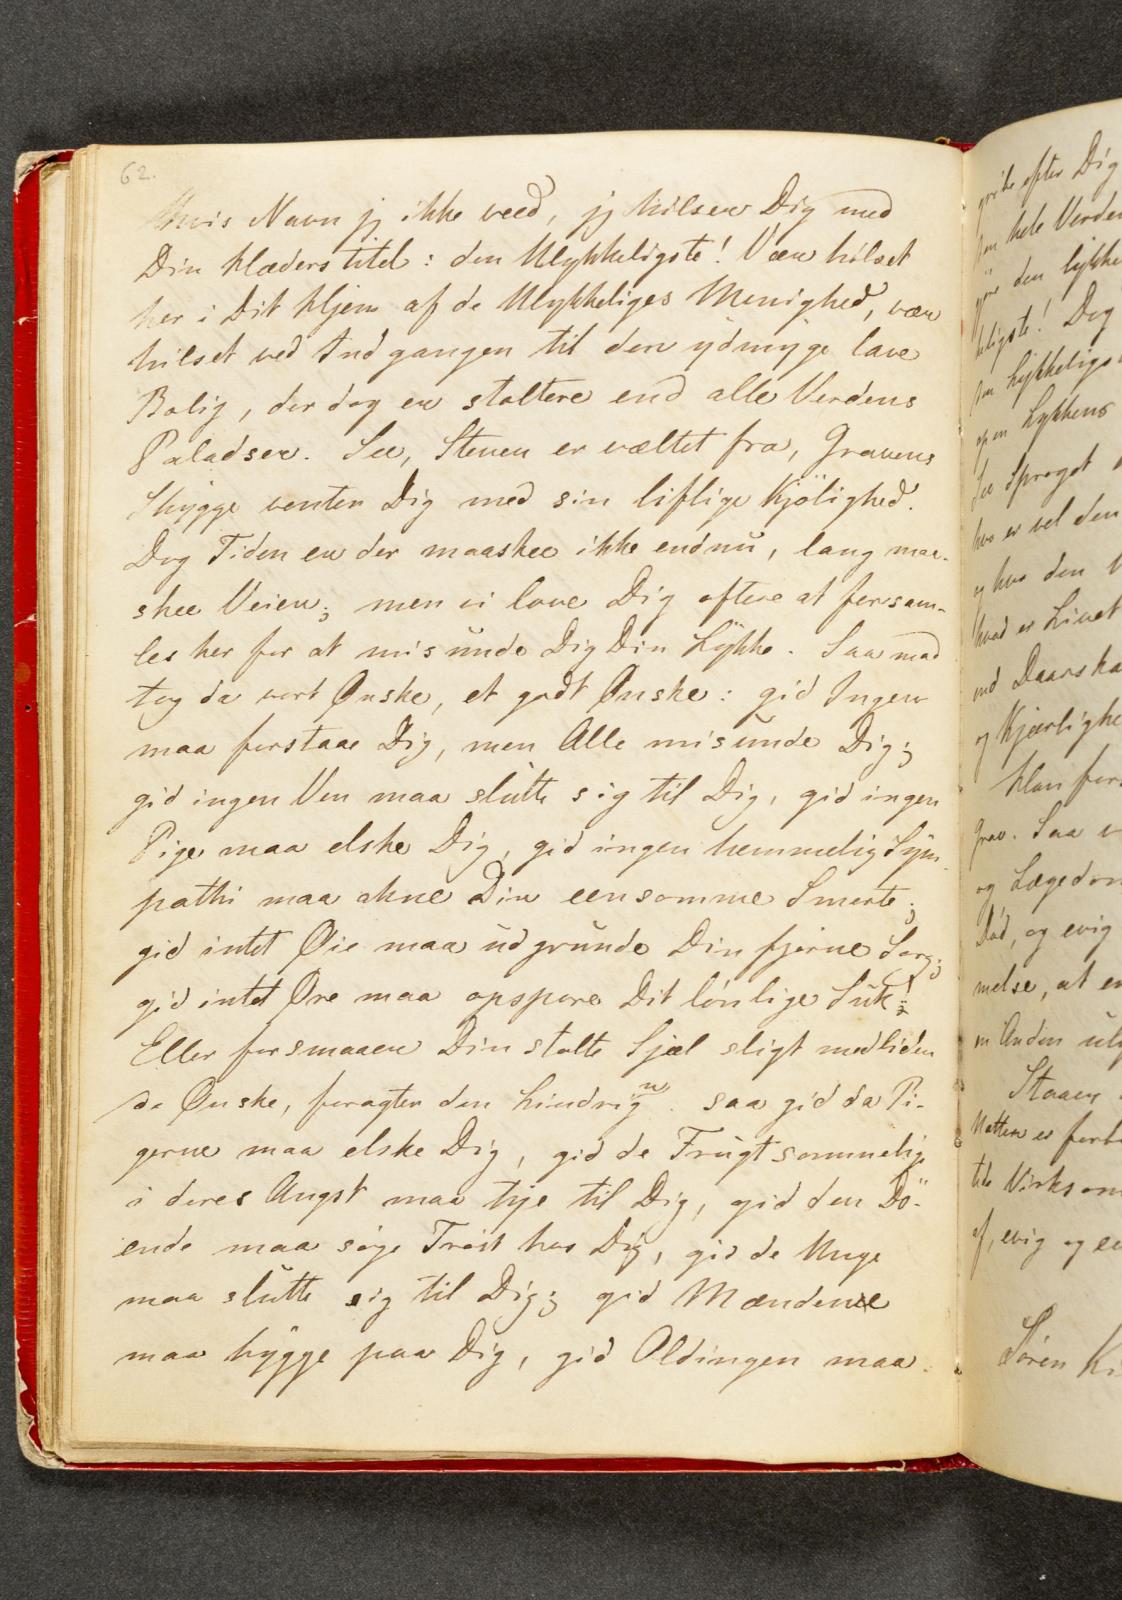 62.
Hvis Navn jg ikke veed, jg hilser Dig med
Din Hæderstitel: den Ulykkeligste! Vær hilset
her i Dit Hjem af de Ulykkeliges Menighed, vær
hilset ved Indgangen til den ydmyge lave
Bolig, der dog er stoltere end alle Verdens
Paladser. See, Stenen er væltet fra, Gravens
Skygge venter Dig med sin liflige Kjölighed.
Dog Tiden er der maaskee ikke endnu, lang maa-
skee Veien; men vi love Dig oftere at forsam-
les her for at misunde Dig Din Lykke. Saa mod
tag da vort Ønske, et godt Ønske: gid Ingen
maa forstaae Dig, men Alle misunde Dig;
gid ingen Ven maa slutte sig til Dig, gid ingen
Pige maa elske Dig, gid ingen hemmelig Sym
pathi maa ahne Din eensomme Smerte;
gid intet Øie maa udgrunde Din fjerne Sorg;
gid intet Øre maa opspore Dit lönlige Suk!
Eller forsmaaer Din stolte Sjæl sligt medliden
de Ønske, foragter den Lindring. saa gid da Pi-
gerne maa elske Dig, gid de Frugtsommelige
i deres Angst maa tye til Dig, gid den Dö-
ende maa söge Tröst hos Dig, gid de Unge
maa slutte sig til Dig; gid Mændene
maa bygge paa Dig, gid Oldingen maa
gribe efter Dig
hele Verden
den lykke
ligste! Dog
Lykkeligs
Lykkens
See Sproget
hvo er vel den
og hvo den
hvad er Livet
Daarska
og Kjærlighe
Han for
Grav. Saa
og Lægedom
Död, og evig
melse, at en
en Anden
Staaer
Natten er forbi
Virksom
af, evig og
Sören Ki